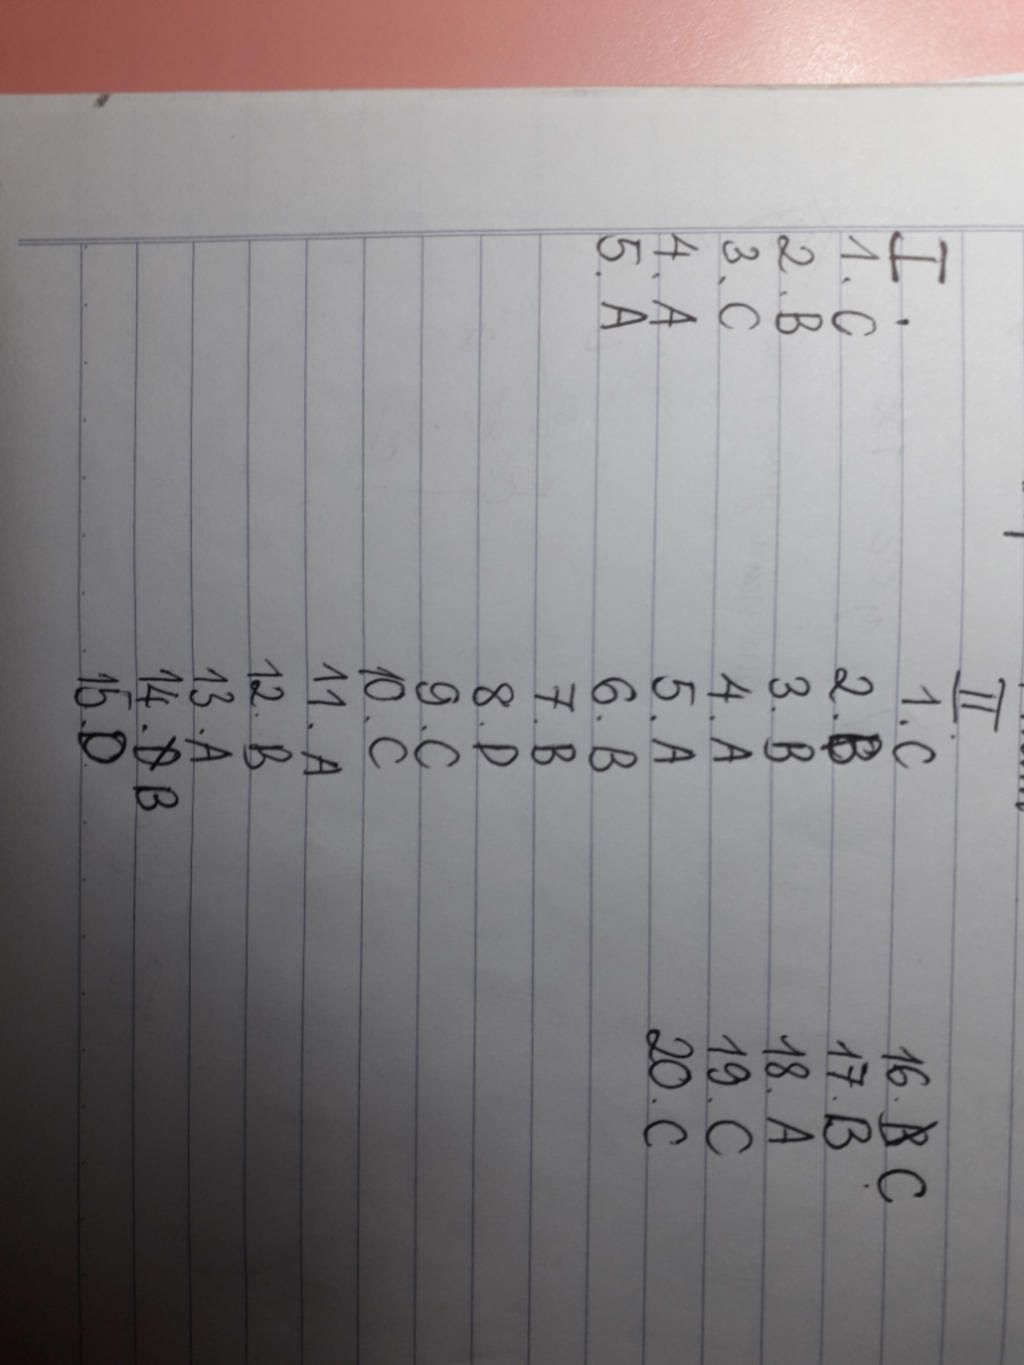 I.
1. C
2. B
3. C
4. A
5. A
II
1. C
2. B
3. B
4. A
5. A
6. B
7. B
8. D
9. C
10. C
11. A
12. B
13. A
14. B
15. D
16. C
17. B
18. A
19. C
20. C